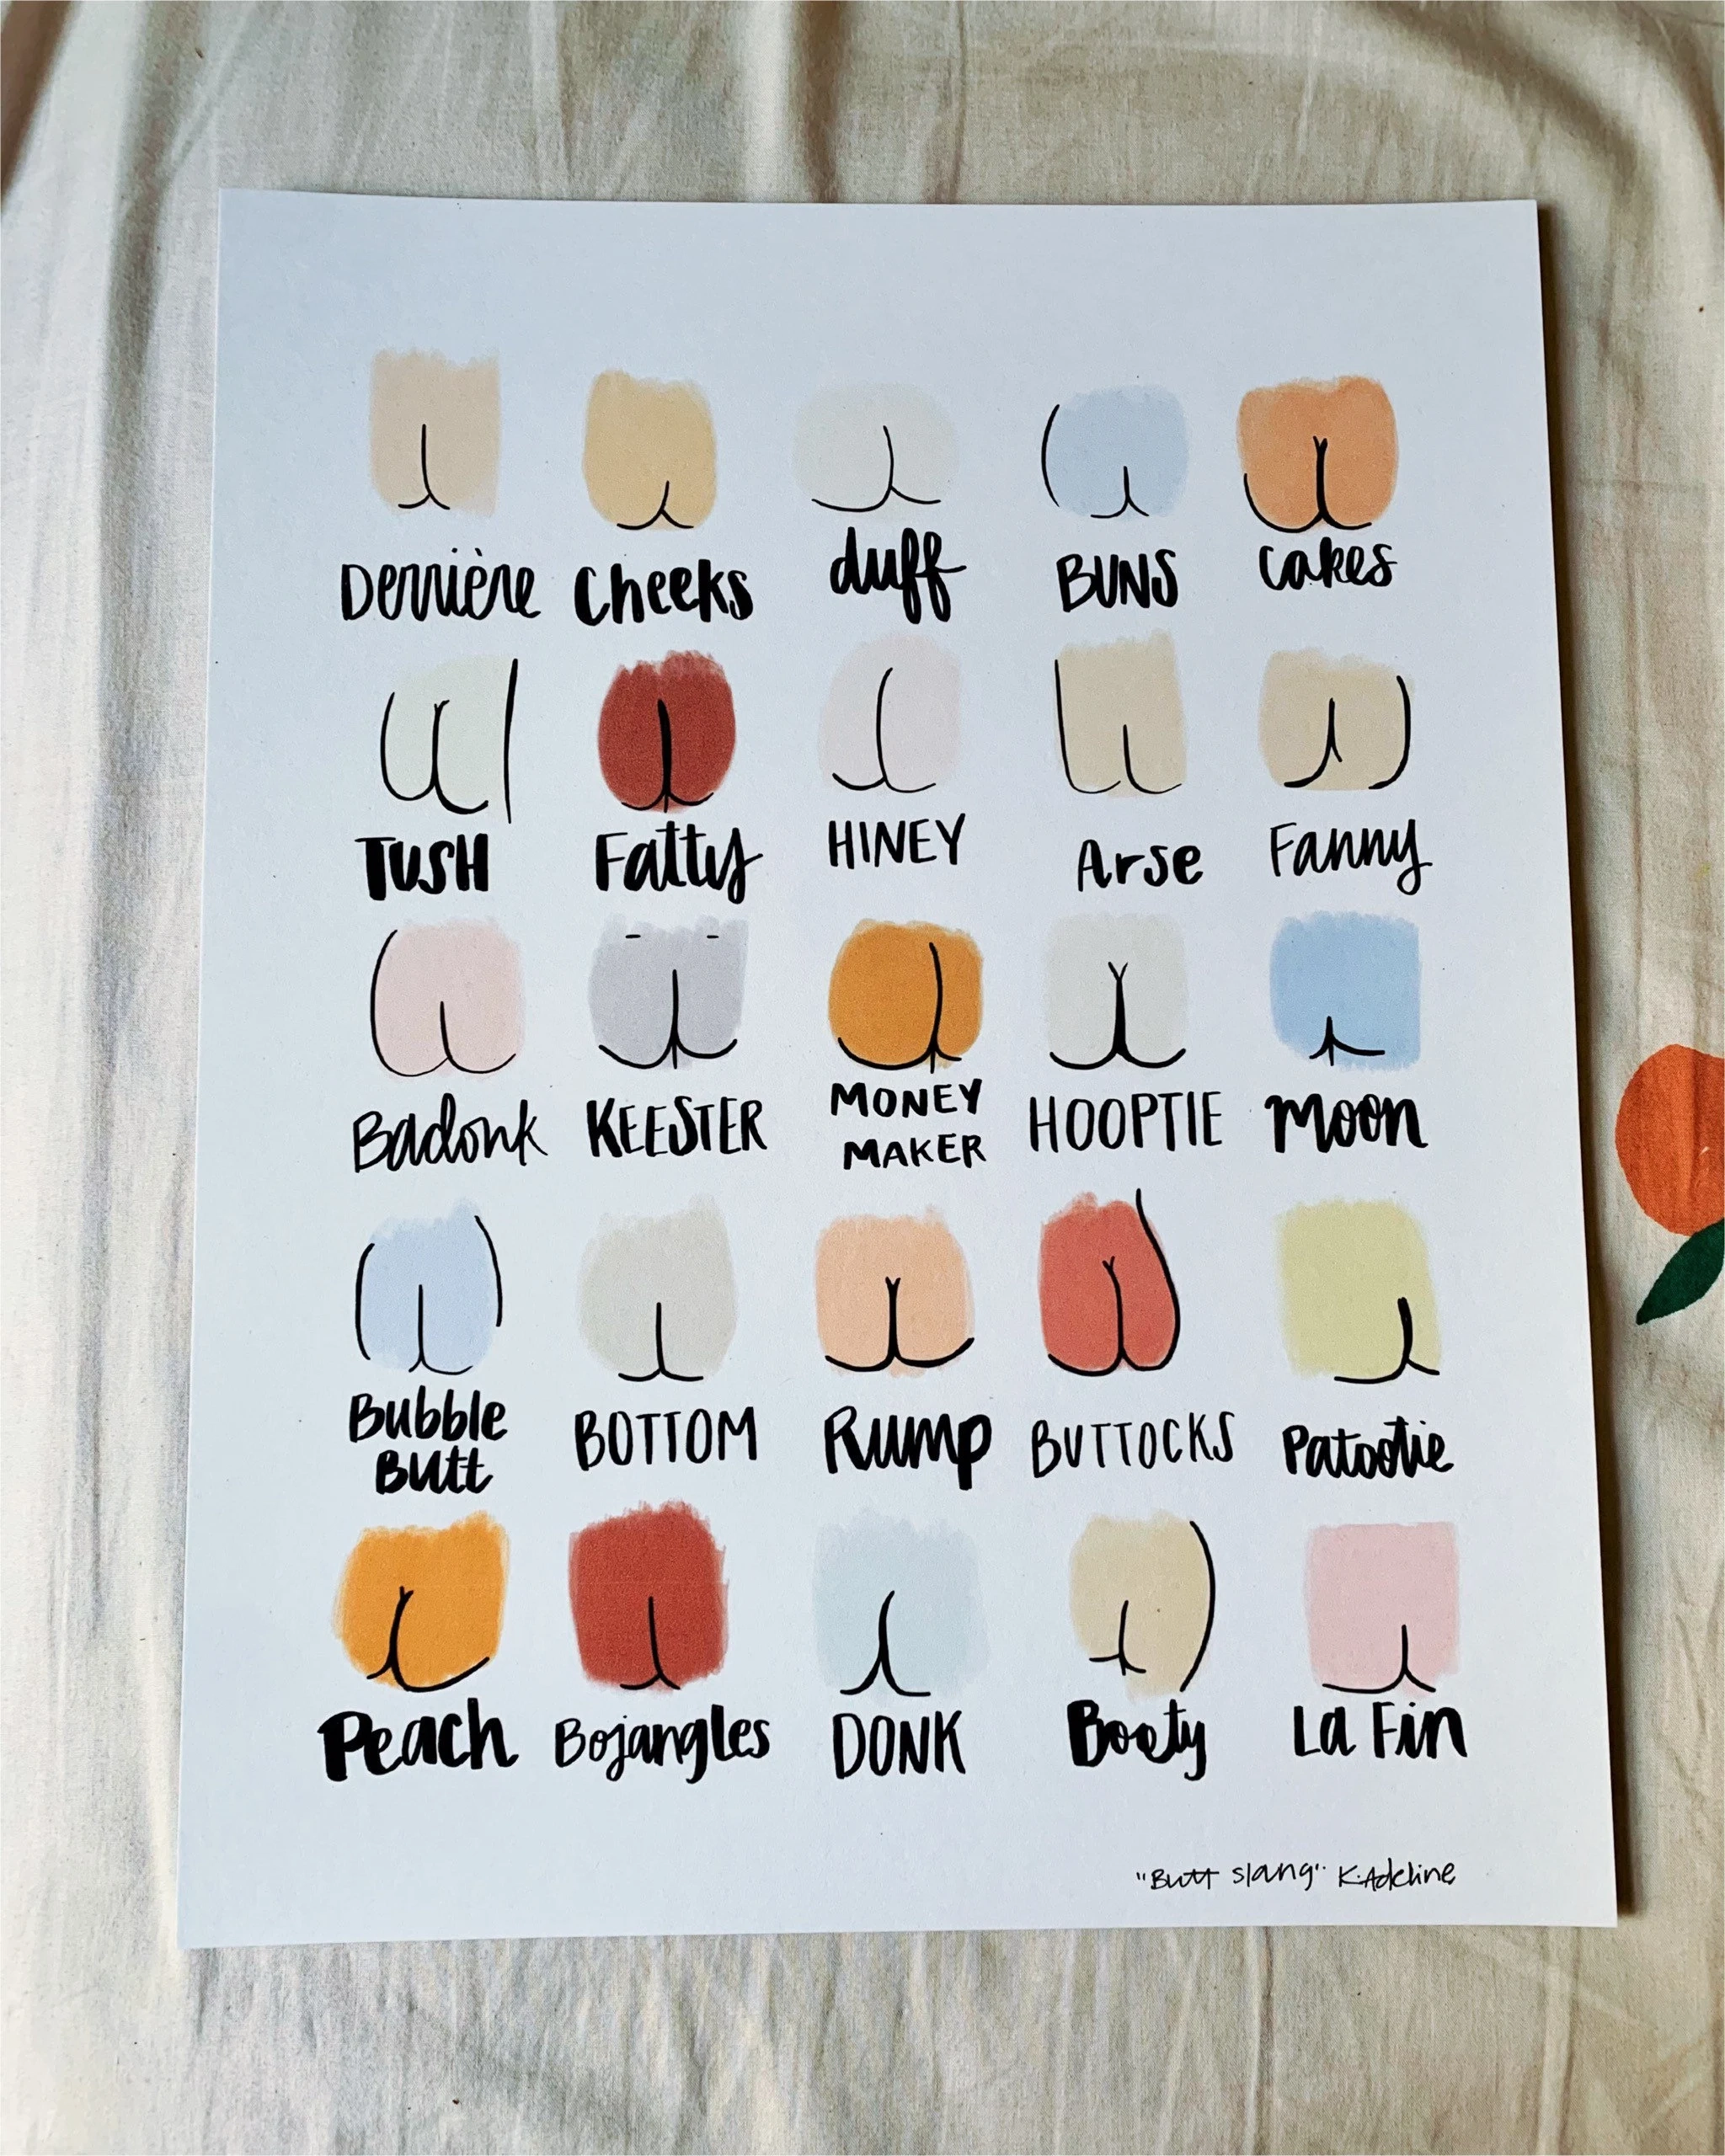 Derrière Cheeks duff BUNS cakes
TUSH Fatty HINEY Arse Fanny
Badonk KEESTER MONEY MAKER HOOPTIE moon
Bubble Butt BOTTOM Rump BUTTOCKS Patootie
Peach Bojangles DONK Booty La Fin
"Butt slang" K.Adeline